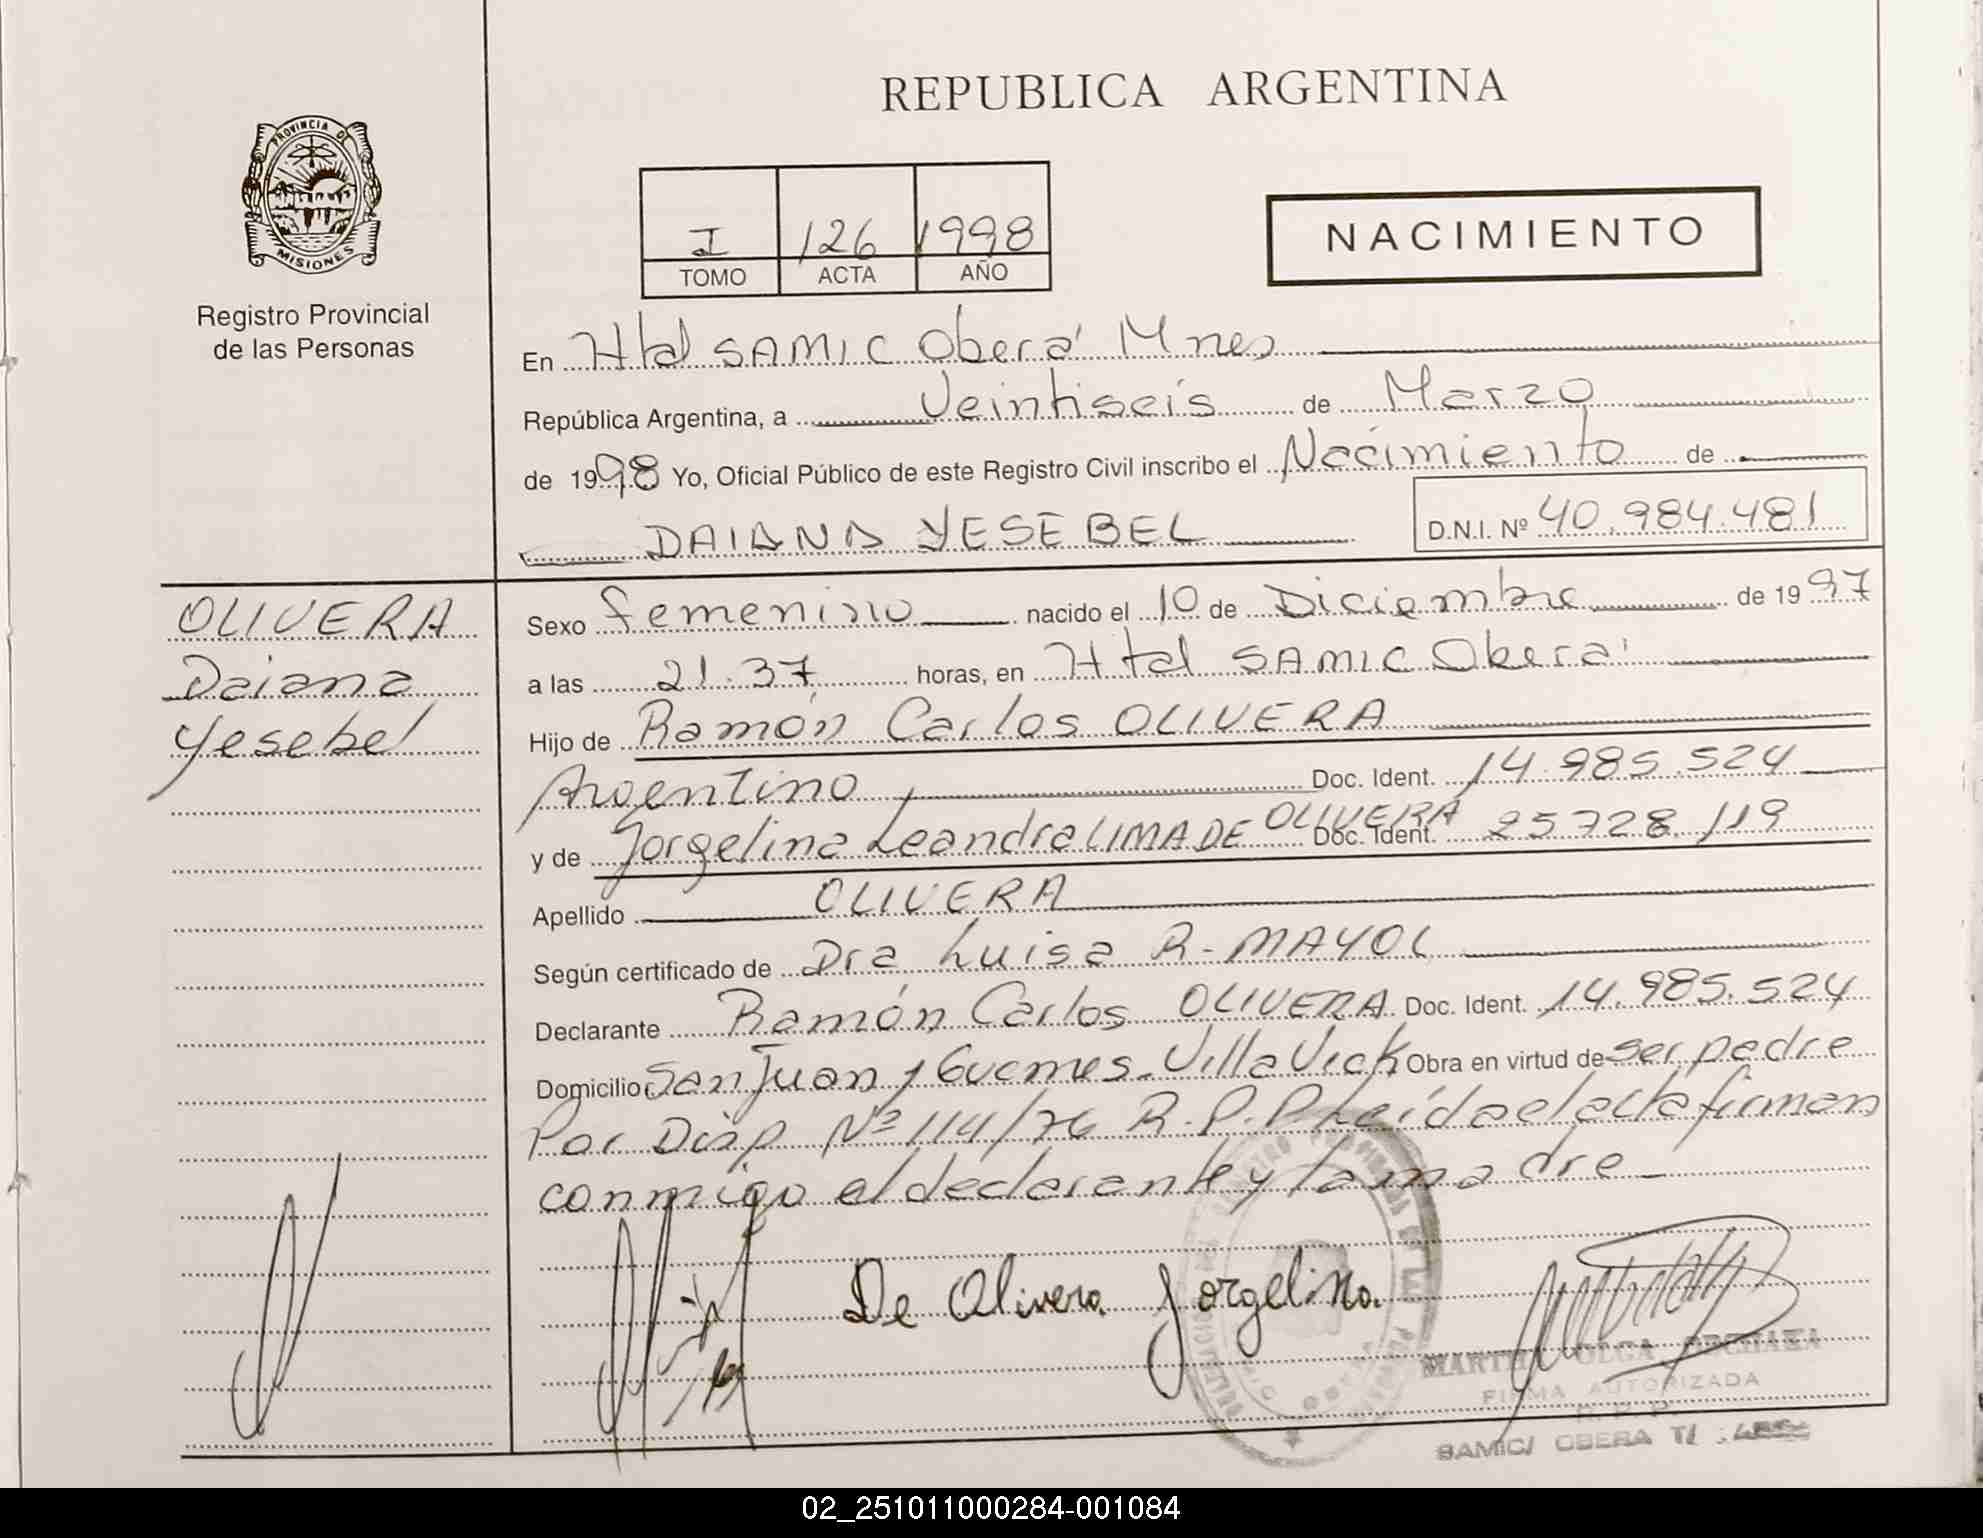 REPUBLICA ARGENTINA
PROVINCIA DE
MISIONES
Registro Provincial
de las Personas
I 126 1998
TOMO ACTA AÑO
NACIMIENTO
En Htal SAMIC Oberá Mnes
República Argentina, a Veintiseis de Marzo
de 1998 Yo, Oficial Público de este Registro Civil inscribo el Nacimiento de
DAIANA YESEBEL D.N.I. Nº 40.984.481
OLIVERA
Daiana
Yesebel
Sexo femenino nacido el 10 de Diciembre de 1997
a las 21.37 horas, en Htal SAMIC Oberá
Hijo de Ramón Carlos OLIVERA
Argentino Doc. Ident. 14.985.524
y de Jorgelina Leandra LIMA DE OLIVERA Doc. Ident. 25728.119
Apellido OLIVERA
Según certificado de Dra Luisa R. MAYOL
Declarante Ramón Carlos OLIVERA Doc. Ident. 14.985.524
Domicilio San Juan y Guemes. Villa Vick Obra en virtud de ser padre
Por Disp Nº 114/76 R.P.P Leída el acta firman
conmigo el declarante y la madre
De Olivera Jorgelina.
MARTHA OLGA
FIRMA AUTORIZADA
R. P. P.
SAMIC/ OBERA
02_251011000284-001084